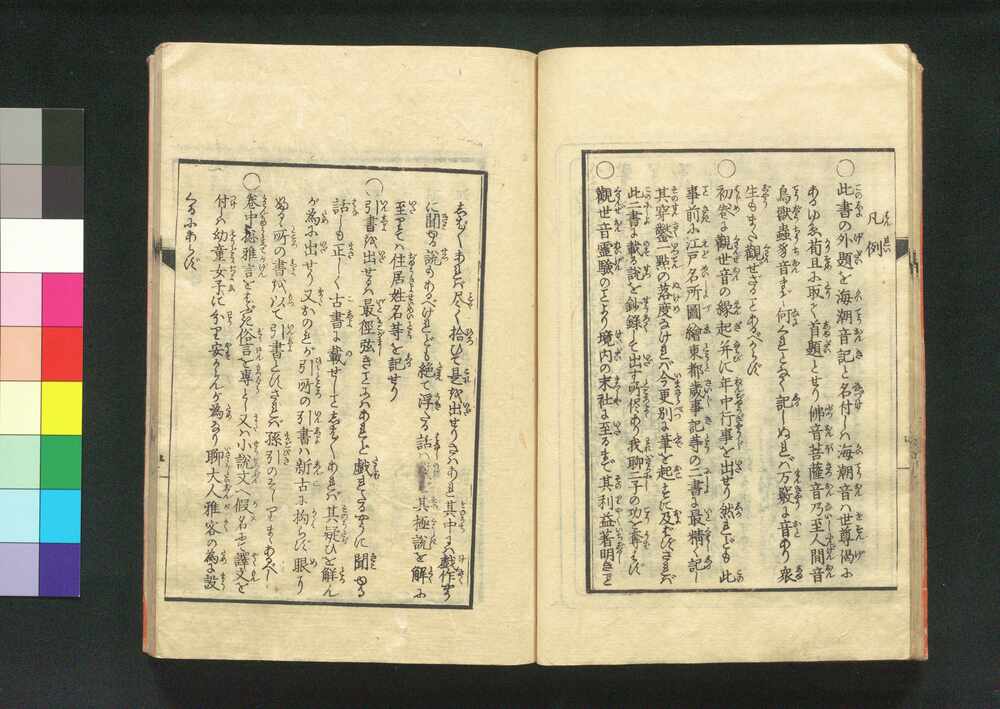 凡例
○此書の外題を海潮音記と名付しハ海潮音ハ世尊偈に
あるゆゑ荀且に取て首題とせり佛音菩薩音乃至人間音
鳥獣蟲豸音まで何くれとなく記しぬれバ万竅に音あり衆
生もまた觀せざることあるべからず
○初卷に觀世音の縁起并に年中行事を出せり然れども此
事前に江戸名所圖繪東都歳事記等の二書に最精く記し
其穿鑿一點の落度なけれバ今更別に筆を起すに及ばざれバ
此二書に載る説を鈔録して出す所あり我聊二子の功を奪はず
○觀世音霊驗のことより境内の末社に至るまで其利益著明きこと
しバ〱あれバ尽く拾ひて是を出せりさハあれど其中にハ戯作
に聞ゆる説もあるべけれども絶て浮たる話ハ其極説を解に
至てハ住居姓名等を記せり
○引書を出せるハ最徑弦きことにハあれど戯れたるやうに聞ゆる
話しも正しく古書に載せしことしあれバ其疑ひを解ん
が為に出せり又おのれが引所の引書ハ新古に拘らず眼り
ぬる所の書を以て引書とひさせバ孫引のそしりもまたあるべし
○卷中總雅言をまじへず俗言を専とし又ハ小説文へ假名もて譯文を
付しハ幼童女子に分り安からんが為なり聊大人雅客の為に設
くるにあらず